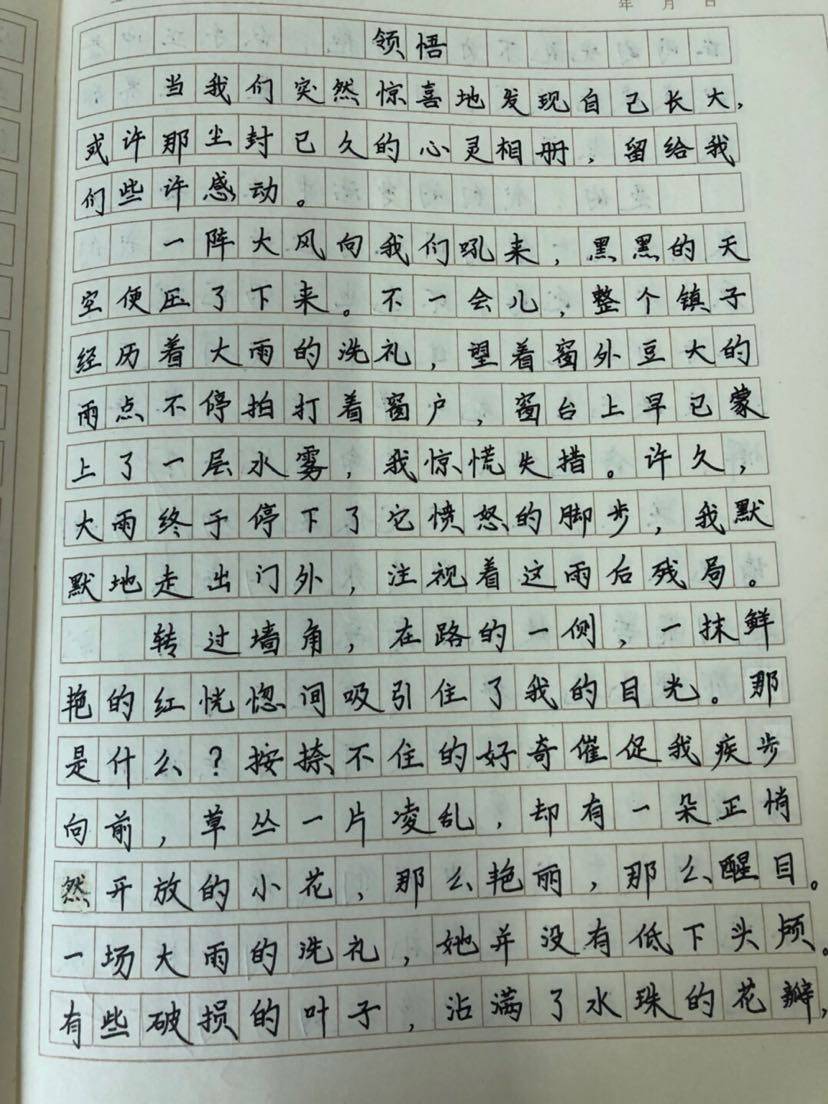 年 月 日
领悟
当我们突然惊喜地发现自己长大,
或许那尘封已久的心灵相册，留给我
们些许感动。
一阵大风向我们吼来，黑黑的天
空便压了下来。不一会儿，整个镇子
经历着大雨的洗礼，望着窗外豆大的
雨点不停拍打着窗户，窗台上早已蒙
上了一层水雾，我惊慌失措。许久，
大雨终于停下了它愤怒的脚步，我默
默地走出门外，注视着这雨后残局。
转过墙角，在路的一侧，一抹鲜
艳的红恍惚间吸引住了我的目光。那
是什么？按捺不住的好奇催促我疾步
向前，草丛一片凌乱，却有一朵正悄
然开放的小花，那么艳丽，那么醒目。
一场大雨的洗礼，她并没有低下头颅。
有些破损的叶子，沾满了水珠的花瓣，